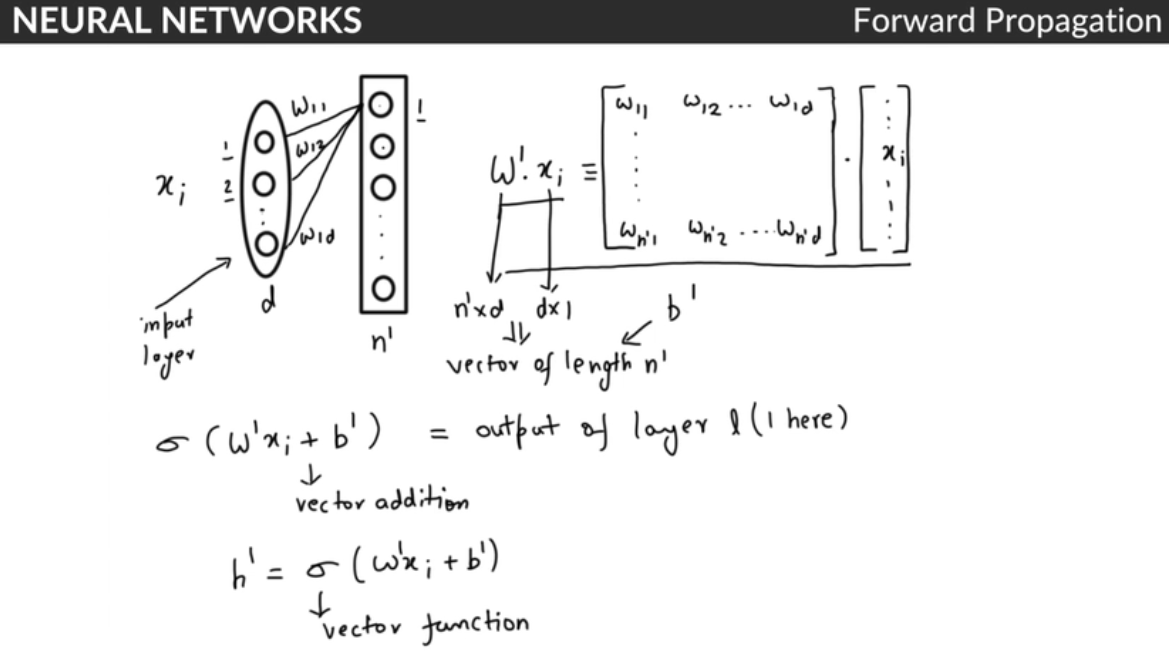 NEURAL NETWORKS
Forward Propagation
xᵢ
1
2
⋮
d
w₁₁
w₁₂
w₁d
1
n¹
input
layer
W¹. xᵢ ≡ [ w₁₁ w₁₂ ... w₁d ⋮ wₙ¹₁ wₙ¹₂ .... wₙ¹d ] . [ ⋮ xᵢ ⋮ ]
n¹×d d×1 b¹
⇓
vector of length n¹
σ (W¹xᵢ + b¹) = output of layer l (1 here)
↓
vector addition
h¹ = σ (W¹xᵢ + b¹)
↓
vector function